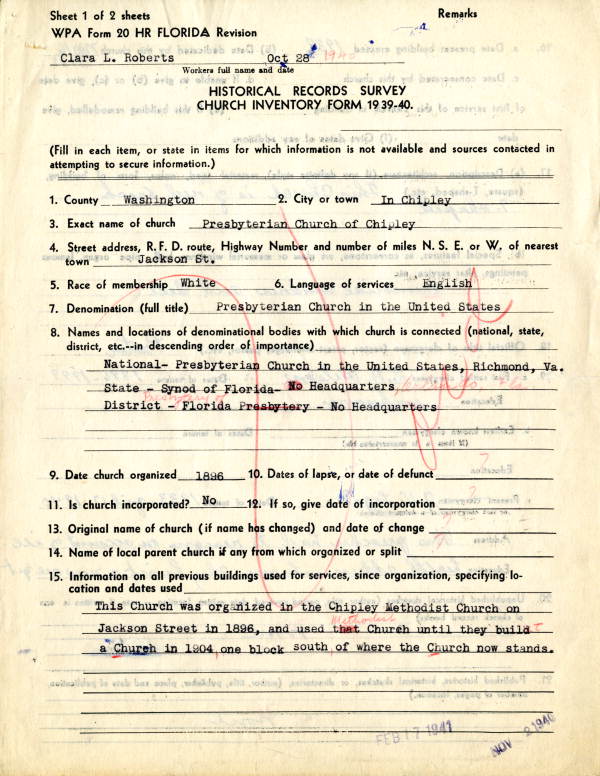 Sheet 1 of 2 sheets Remarks
WPA Form 20 HR FLORIDA Revision
Clara L. Roberts Oct 28 1940
Workers full name and date
HISTORICAL RECORDS SURVEY
CHURCH INVENTORY FORM 1939-40.
(Fill in each item, or state in items for which information is not available and sources contacted in
attempting to secure information.)
1. County Washington 2. City or town In Chipley
3. Exact name of church Presbyterian Church of Chipley
4. Street address, R. F. D. route, Highway Number and number of miles N. S. E. or W. of nearest
town Jackson St.
5. Race of membership White 6. Language of services English
7. Denomination (full title) Presbyterian Church in the United States
8. Names and locations of denominational bodies with which church is connected (national, state,
district, etc.--in descending order of importance)
National- Presbyterian Church in the United States, Richmond, Va.
State - Synod of Florida- No Headquarters,
Presbytery of
District - Florida Presbytery - No Headquarters
9. Date church organized 1896 10. Dates of lapse, or date of defunct
11. Is church incorporated? No 12. If so, give date of incorporation
13. Original name of church (if name has changed) and date of change
14. Name of local parent church if any from which organized or split
15. Information on all previous buildings used for services, since organization, specifying lo-
cation and dates used
This Church was organized in the Chipley Methodist Church on
Methodist
Jackson Street in 1896, and used that Church until they build
a Church in 1904, one block south of where the Church now stands.
FEB 17 1941
NOV 2 1940